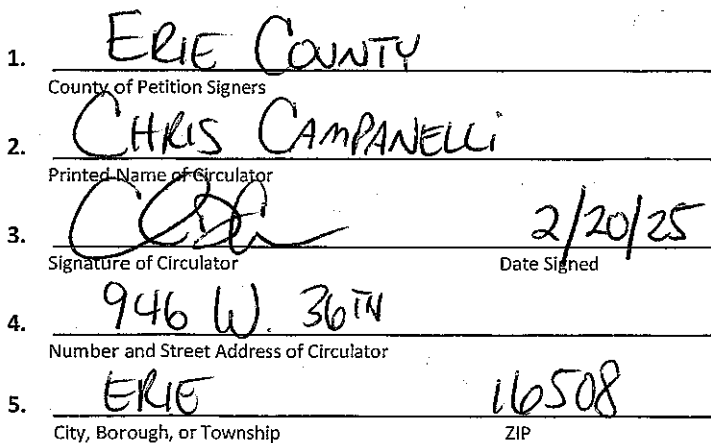 1. ERIE COUNTY
County of Petition Signers
2. CHRIS CAMPANELLI
Printed Name of Circulator
3. 2/20/25
Signature of Circulator Date Signed
4. 946 W. 36TH
Number and Street Address of Circulator
5. ERIE 16508
City, Borough, or Township ZIP